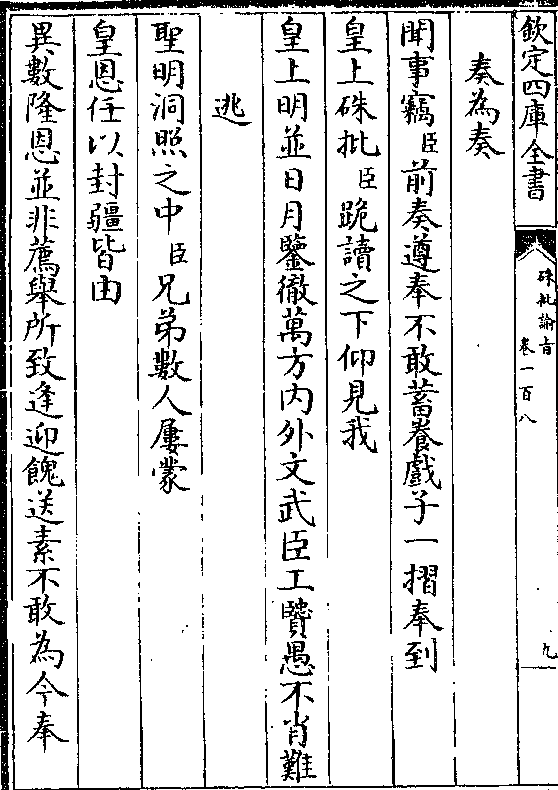 欽定四庫全書
硃批諭旨
卷一百八
九
奏為奏
聞事竊臣前奏遵奉不敢蓄養戲子一摺奉到
皇上硃批臣跪讀之下仰見我
皇上明並日月鑒徹萬方內外文武臣工賢愚不肖難
逃
聖明洞照之中臣兄弟數人屢蒙
皇恩任以封疆皆由
異數隆恩並非薦舉所致逢迎餽送素不敢為今奉